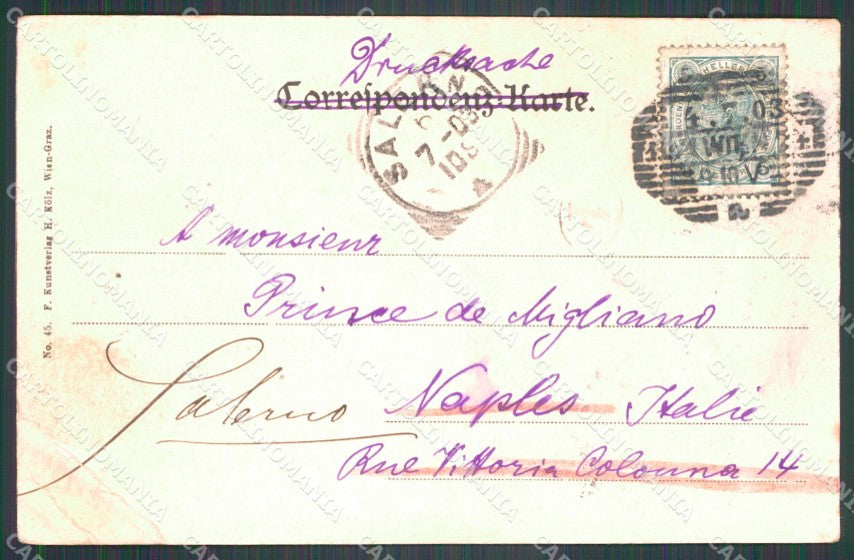 Drucksache
Correspondenz-Karte.
HELLER
SALERNO
7-03
4 3 03
WIEN
A monsieur
Prince de Migliano
Salerno Naples Italie
Rue Vittoria Colonna 14
No. 45. F. Kunstverlag H. Kölz, Wien-Graz.
CARTOLINOMANIA